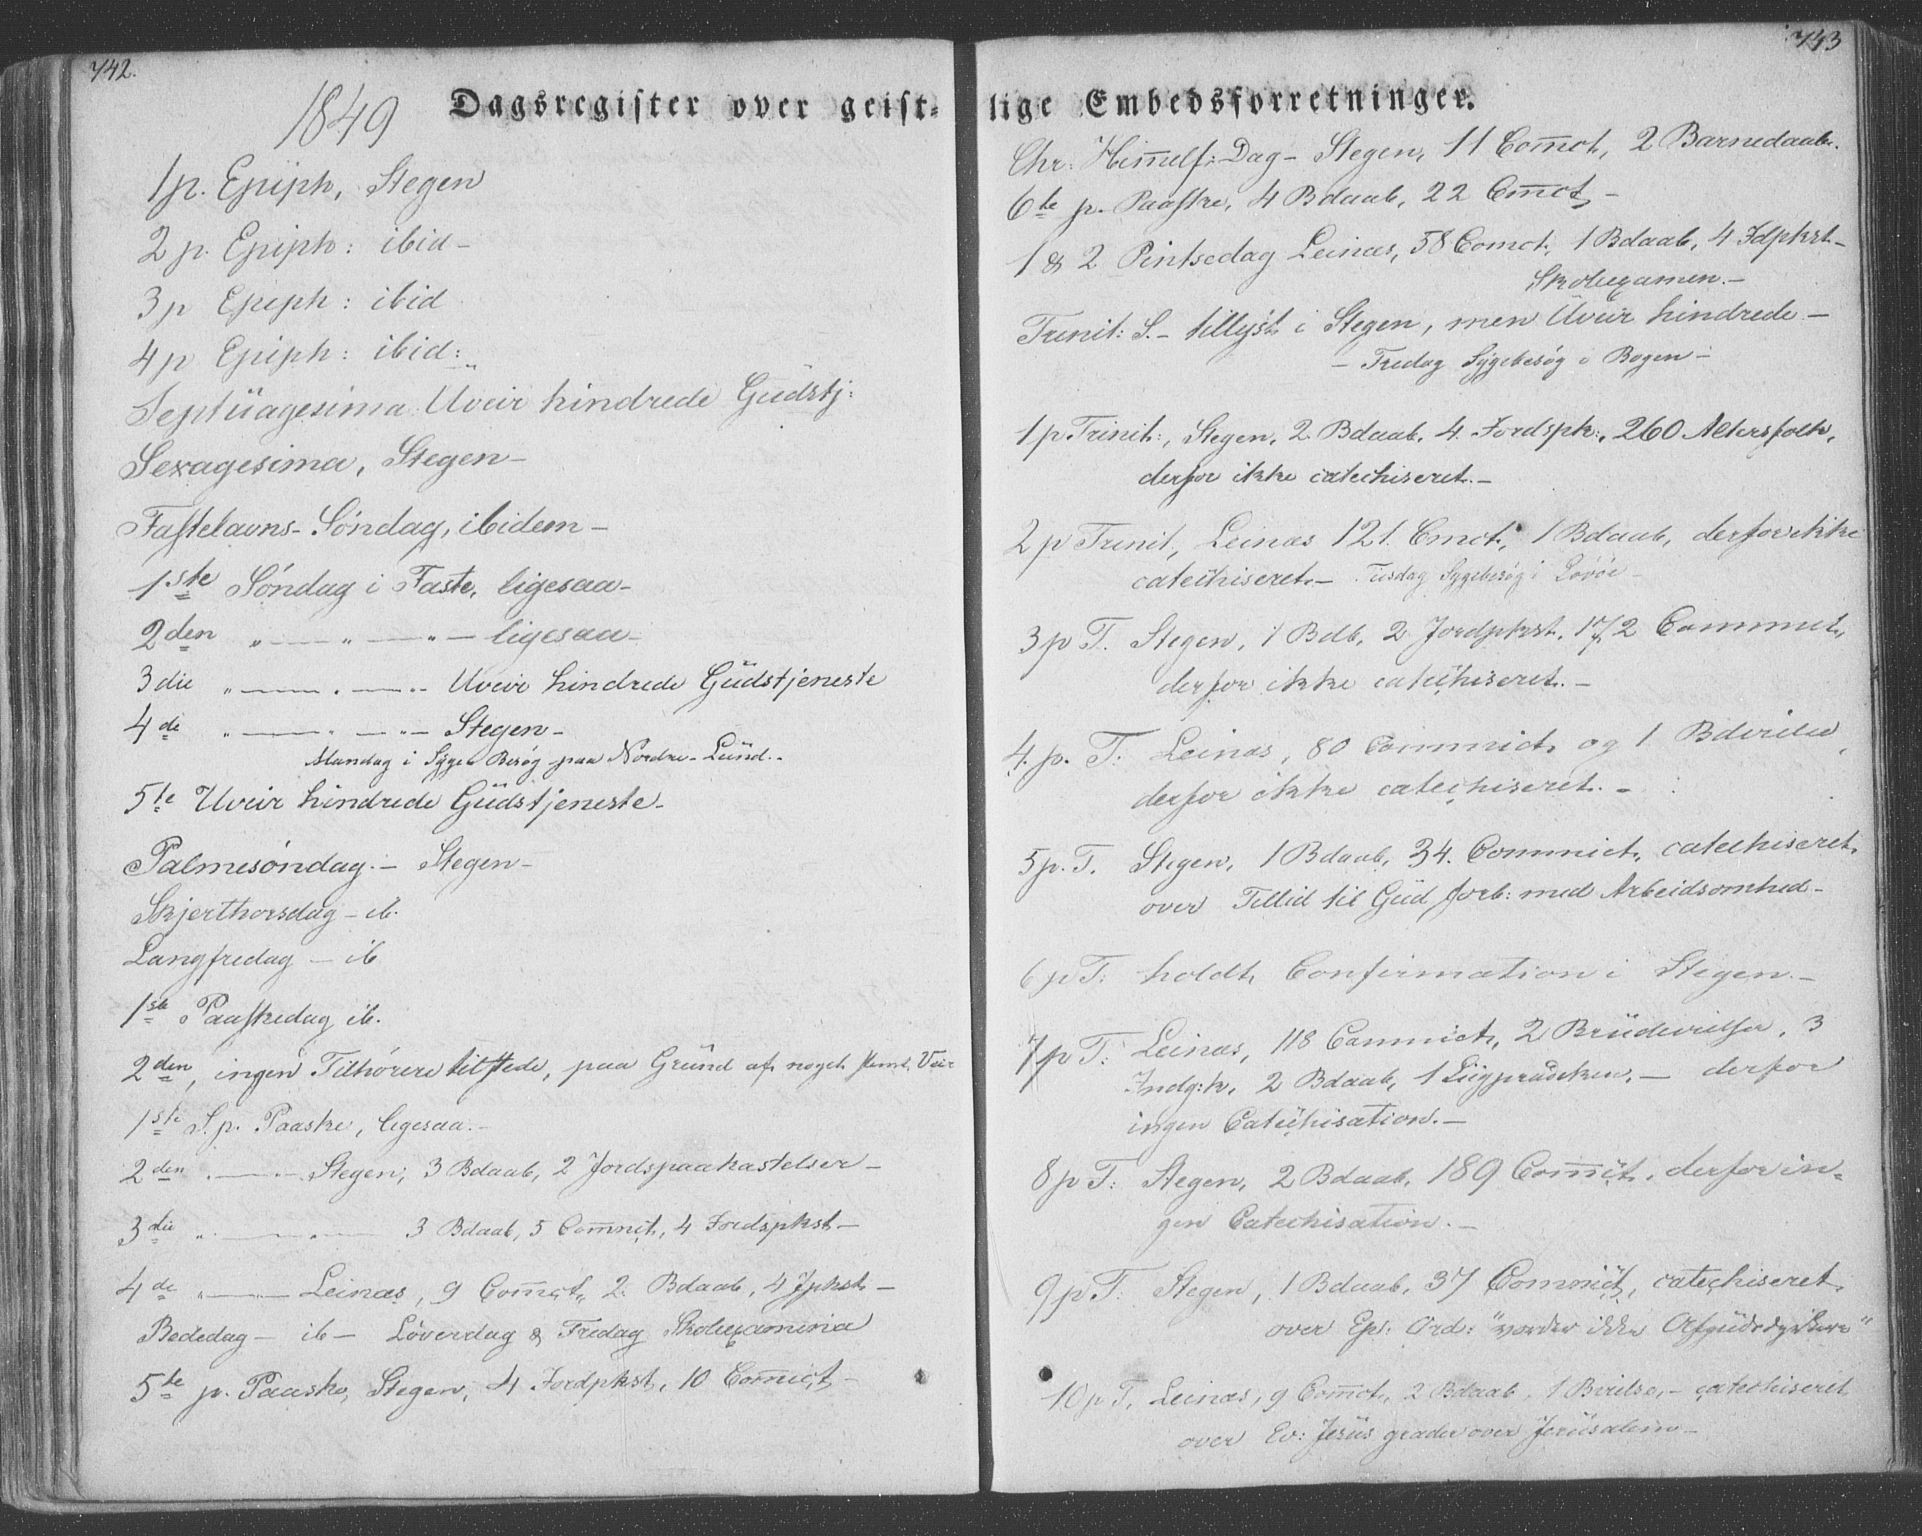 742.
1849
Dagsregister over geist-
1 p. Epiph, Stegen
2 p. Epiph: ibid -
3 p Epiph: ibid
4 p Epiph: ibid:
Septuagesima Uveir hindrede Gudstj:
Sexagesima, Stegen -
Fastelavns-Søndag, ibidem -
1ste Søndag i Faste, ligesaa -
2den " — " — " — ligesaa -
3die " — " — " Uveir hindrede Gudstjeneste
4de " — " — " — Stegen -
Mandag i Syge Besøg paa Nordre-Lund. -
5te Uveir hindrede Gudstjeneste -
Palmesøndag. - Stegen -
Skjerthorsdag - ib.
Langfredag - ib
1ste Paaskedag ib.
2den, ingen Tilhørere tilstede, paa Grund af noget slemt Veir
1ste S. p. Paaske, ligesaa. -
2den " — " Stegen, 3 Bdaab, 2 Jordspaakastelser -
3die " — " — 3 Bdaab, 5 Commct, 4 Jordspkst -
4de " — Leinæs, 9 Commct, 2 Bdaab, 4 Jpkst -
Bededag - ib - Løverdag & Fredag Skoleexamina
5te p. Paaske, Stegen, 4 Jordpkst, 10 Commict -
743
lige Embedsforretninger.
Chr: Himmelf: Dag - Stegen, 11 Commct, 2 Barnedaab.
6te p. Paaske, 4 Bdaab, 22 Cmct -
1 & 2 Pintsedag Leinæs, 58 Comct, 1 Bdaab, 4 Jdpkst -
Skoleexamen. -
Trinit: S. - tillyst i Stegen, men Uveir hindrede -
- Fredag Sygebesøg i Bogen -
1 p Trinit:, Stegen, 2 Bdaab, 4 Jordspk:, 260 Altersfolk,
derfor ikke catechiseret. -
2 p Trinit, Leinæs 121. Cmct, 1 Bdaab, derfor ikke
catechiseret. - Tirsdag Sygebesøg i
3 p T. Stegen, 1 Bdb, 2 Jordpkst, 172 Commct,
derfor ikke catechiseret. -
4. p. T: Leinæs, 80 Commict og 1 Bdvielse,
derfor ikke catechiseret. -
5 p. T. Stegen, 1 Bdaab, 34. Commict, catechiseret
over Tillid til Gud forb: med Arbeidsomhed -
6 p T: holdt Confirmation i Stegen -
7 p T: Leinæs, 118 Commict, 2 Brudevielser, 3
Indg:k, 2 Bdaab, 1 - derfor
ingen Catechisation. -
8 p T: Stegen, 2 Bdaab, 189 Commict, derfor in-
gen Catechisation. -
9 p T: Stegen, 1 Bdaab, 37 Commict, catechiseret
over Ep: Ord: "vorder ikke Afgudsdyrkere"
10 p T, Leinæs, 9 Commct, 2 Bdaab, 1 Bvielse, - catechiseret
over Ev: Jesus græder over Jerusalem -